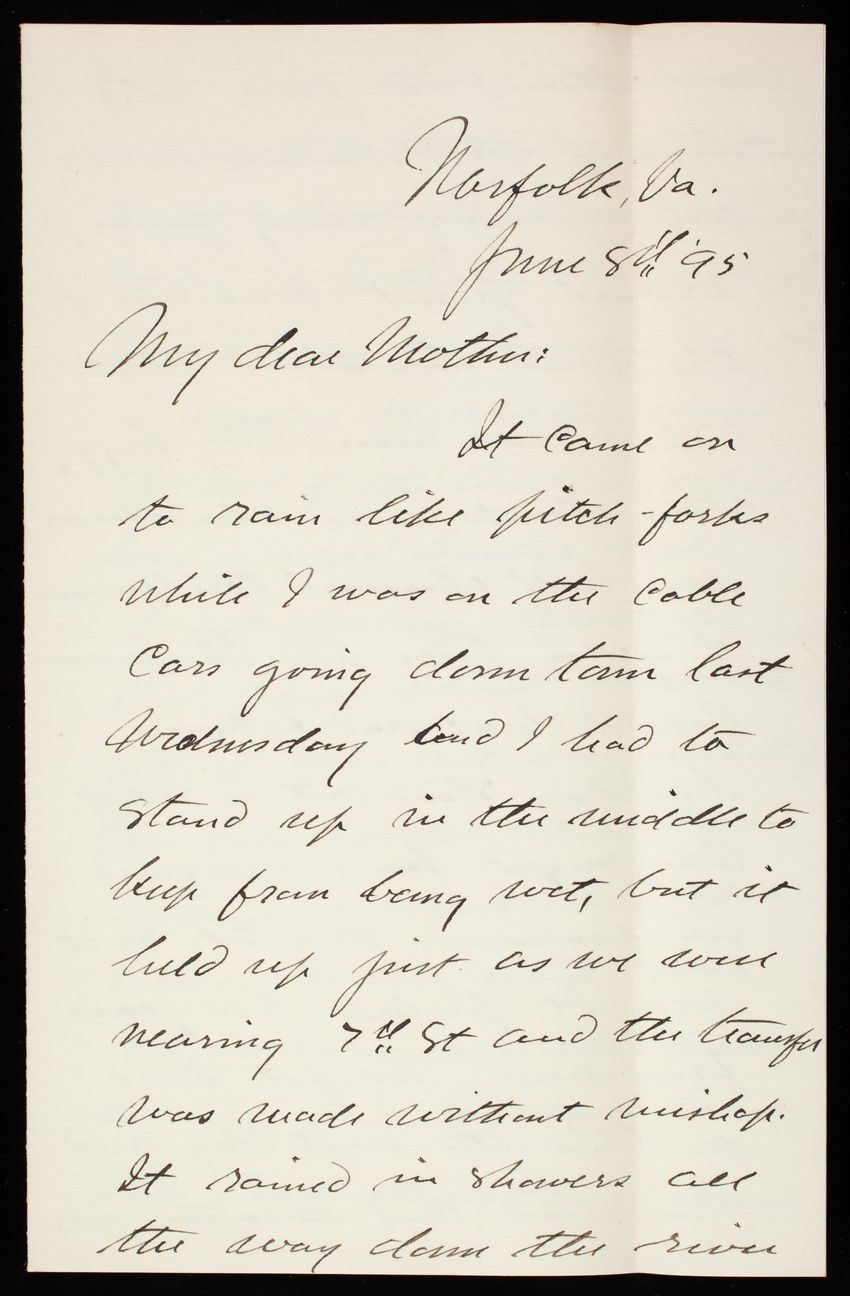 Norfolk, Va.
June 8th '95
My dear Mother:
It came on
to rain like pitch-forks
while I was on the cable
cars going down town last
Wednesday and I had to
stand up in the middle to
keep from being wet, but it
held up just as we were
nearing 7th St and the transfer
was made without mishap.
It rained in showers all
the way down the river